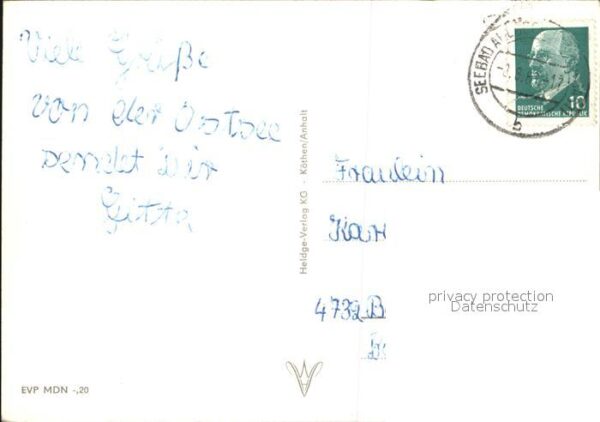 Viele Grüße
von der Ostsee
sendet Dir
Gitta
EVP MDN -,20
Heldge-Verlag KG - Köthen/Anhalt
SEEBAD
b
10
DEUTSCHE
DEMOKRATISCHE REPUBLIK
Fräulein
Kar
4732 B
privacy protection
Datenschutz